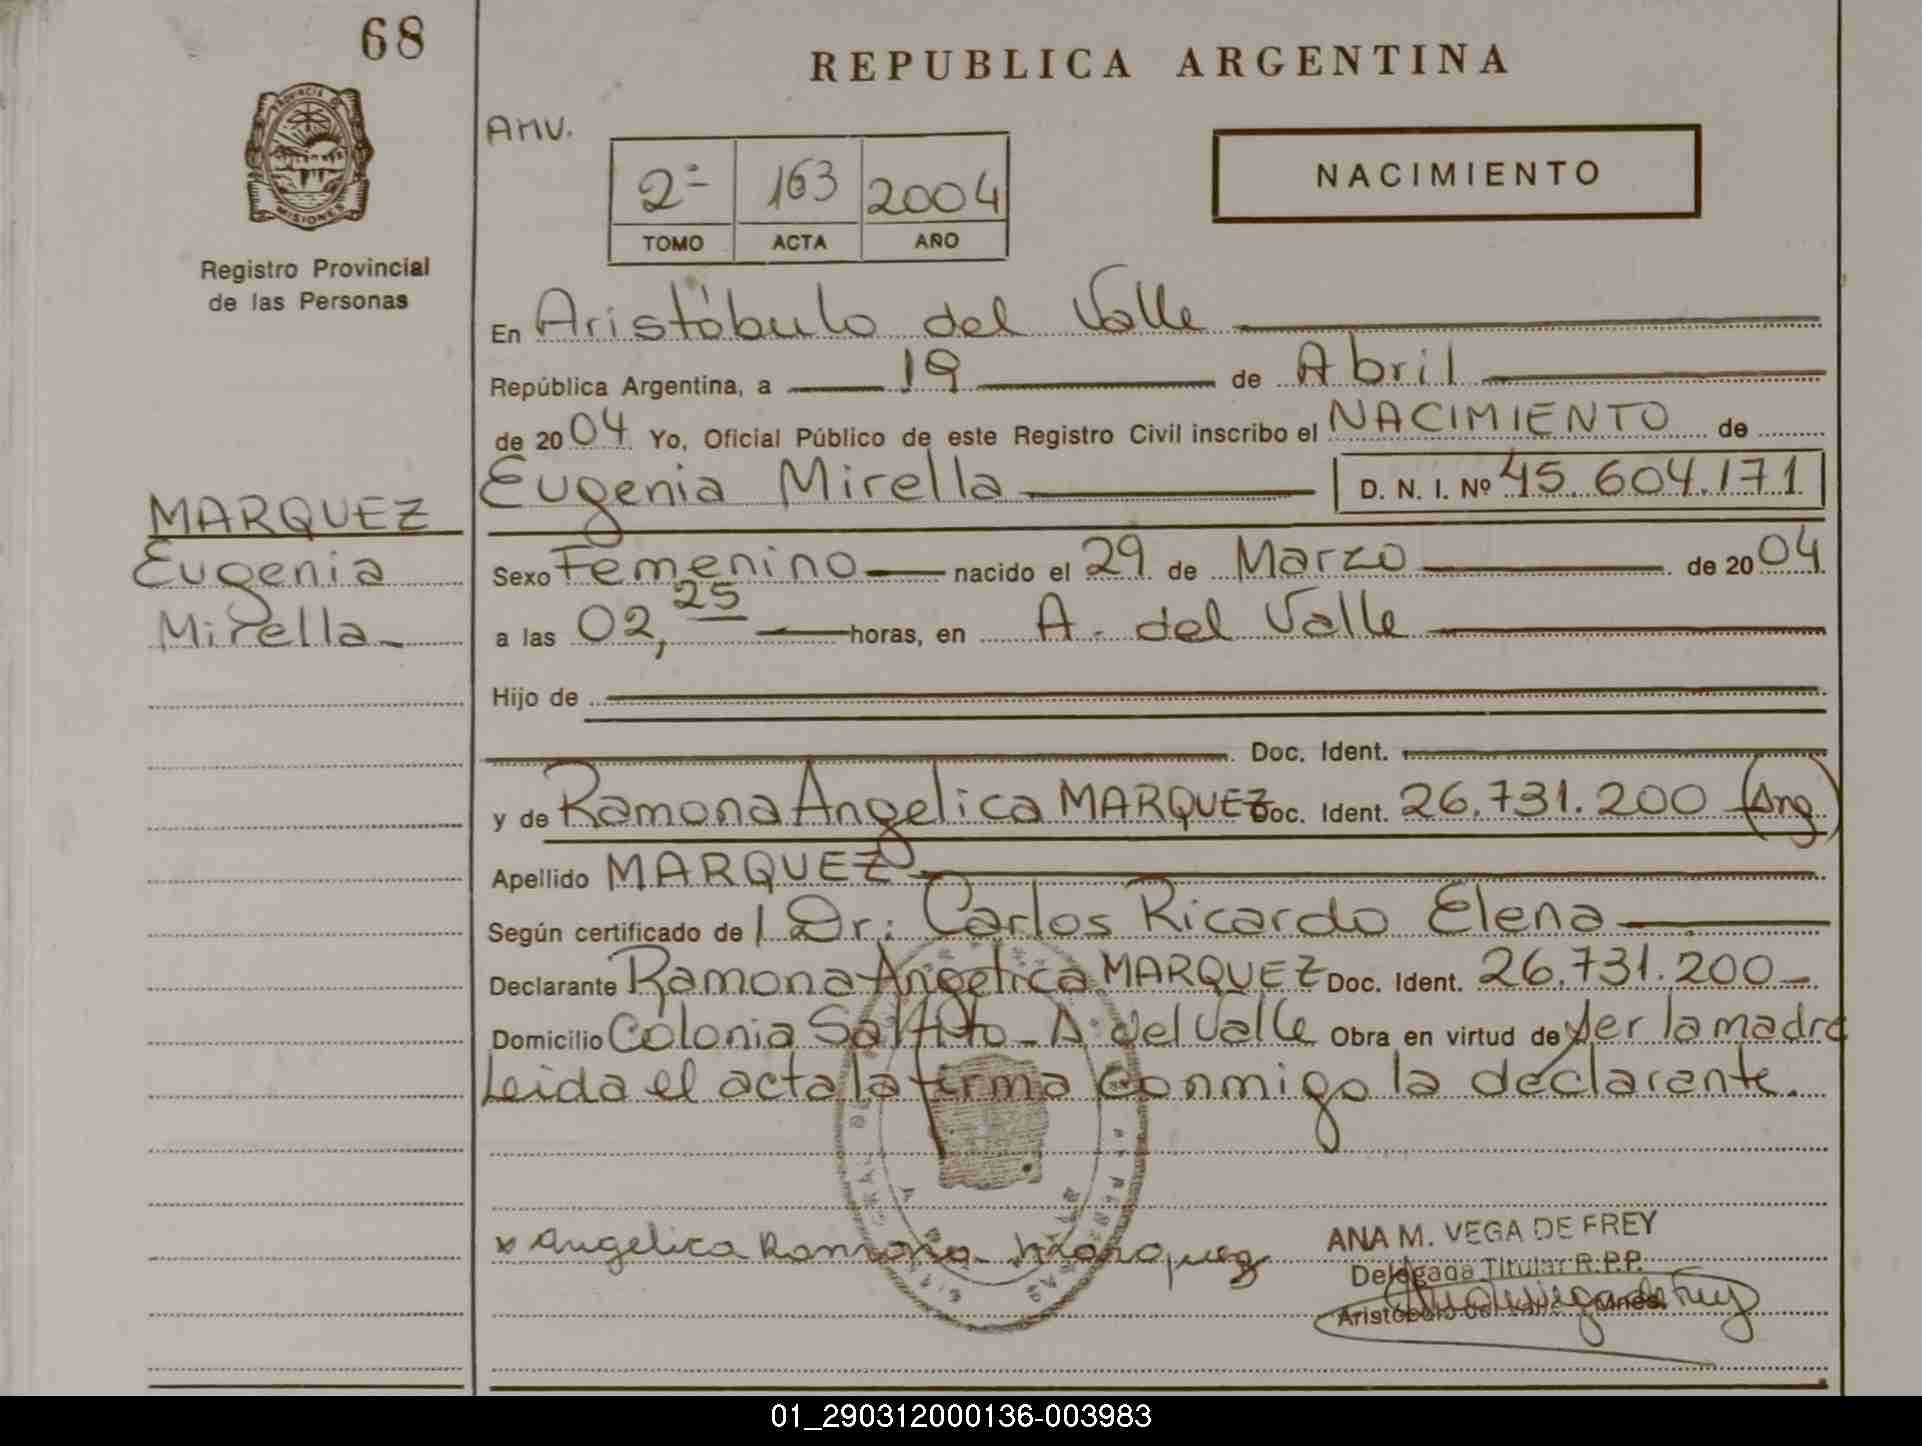 68
PROVINCIA DE
MISIONES
Registro Provincial
de las Personas
MARQUEZ
Eugenia
Mirella
REPUBLICA ARGENTINA
AMV.
NACIMIENTO
2ª 163 2004
TOMO ACTA AÑO
En Aristóbulo del Valle
República Argentina, a 19 de Abril
de 2004 Yo, Oficial Público de este Registro Civil inscribo el NACIMIENTO de
Eugenia Mirella D. N. I. Nº 45.604.171
Sexo Femenino nacido el 29 de Marzo de 2004
a las 02,25 horas, en A. del Valle
Hijo de
Doc. Ident.
y de Ramona Angelica MARQUEZ Doc. Ident. 26.731.200 (Arg)
Apellido MARQUEZ
Según certificado de l Dr: Carlos Ricardo Elena
Declarante Ramona Angelica MARQUEZ Doc. Ident. 26.731.200
Domicilio Colonia Saltito - A. del Valle Obra en virtud de ser la madre
Leida el acta la firma conmigo la declarante.
x Angelica Ramona Marquez
ANA M. VEGA DE FREY
Delegada Titular R.P.P.
Aristóbulo del Valle Mnes.
01_290312000136-003983